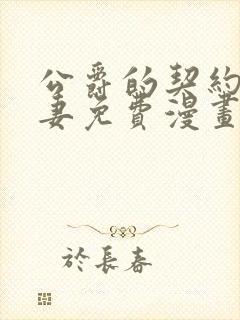 公爵的契約
妻免費漫畫
於長春